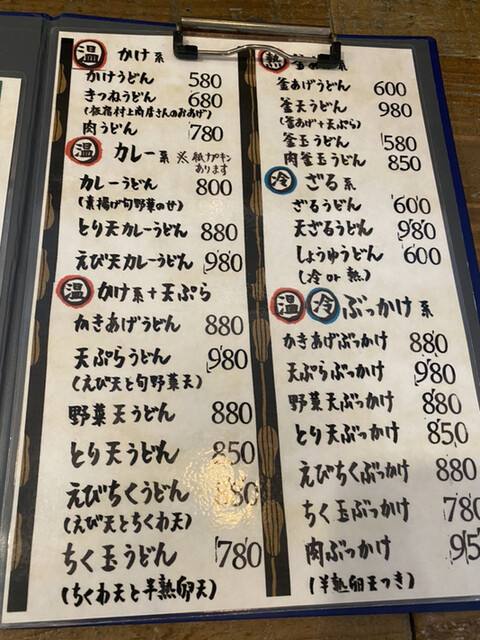 温 かけ系
かけうどん 580
きつねうどん 680
(板宿村上商店さんのおあげ)
肉うどん 780
温 カレー系 ※紙ナプキン
あります
カレーうどん 800
(素揚げ旬野菜のせ)
とり天カレーうどん 880
えび天カレーうどん 980
温 かけ系+天ぷら
かきあげうどん 880
天ぷらうどん 980
(えび天と旬野菜天)
野菜天うどん 880
とり天うどん 850
えびちくうどん 880
(えび天とちくわ天)
ちく玉うどん 780
(ちくわ天と半熟卵天)
熱 系
釜あげうどん 600
釜天うどん 980
(釜あげ+天ぷら)
釜玉うどん 580
肉釜玉うどん 850
冷 ざる系
ざるうどん 600
天ざるうどん 980
しょうゆうどん 600
(冷 or 熱)
温 冷 ぶっかけ系
かきあげぶっかけ 880
天ぷらぶっかけ 980
野菜天ぶっかけ 880
とり天ぶっかけ 850
えびちくぶっかけ 880
ちく玉ぶっかけ 780
肉ぶっかけ
(半熟卵天つき)